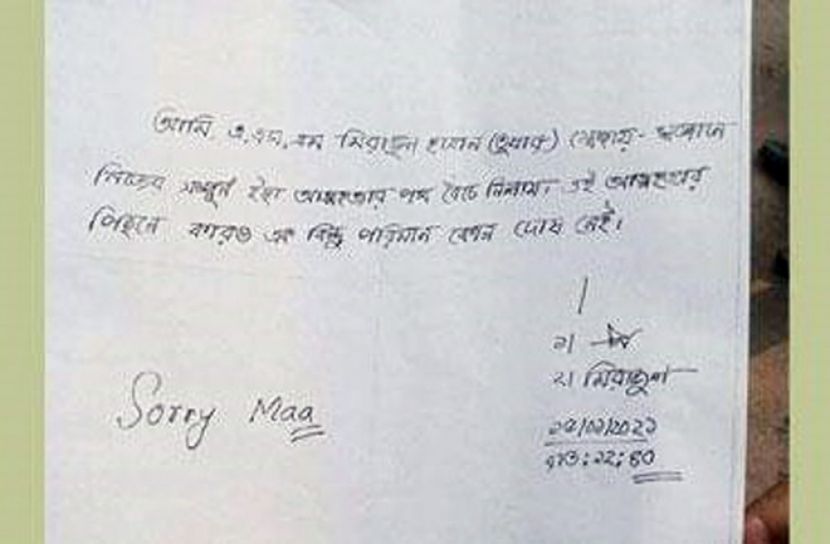 আমি এ,এস,এম মিরাজুল হাসান (তুষার) স্বেচ্ছায়- স্বজ্ঞানে
নিজের সম্পূর্ন ইচ্ছা আত্মহত্যার পথ বেঁচে নিলাম। এই আত্মহত্যার
পিছনে কারও এক বিন্দু পরিমান কোন দোষ নেই।
১।
২। মিরাজুল
Sorry Maa